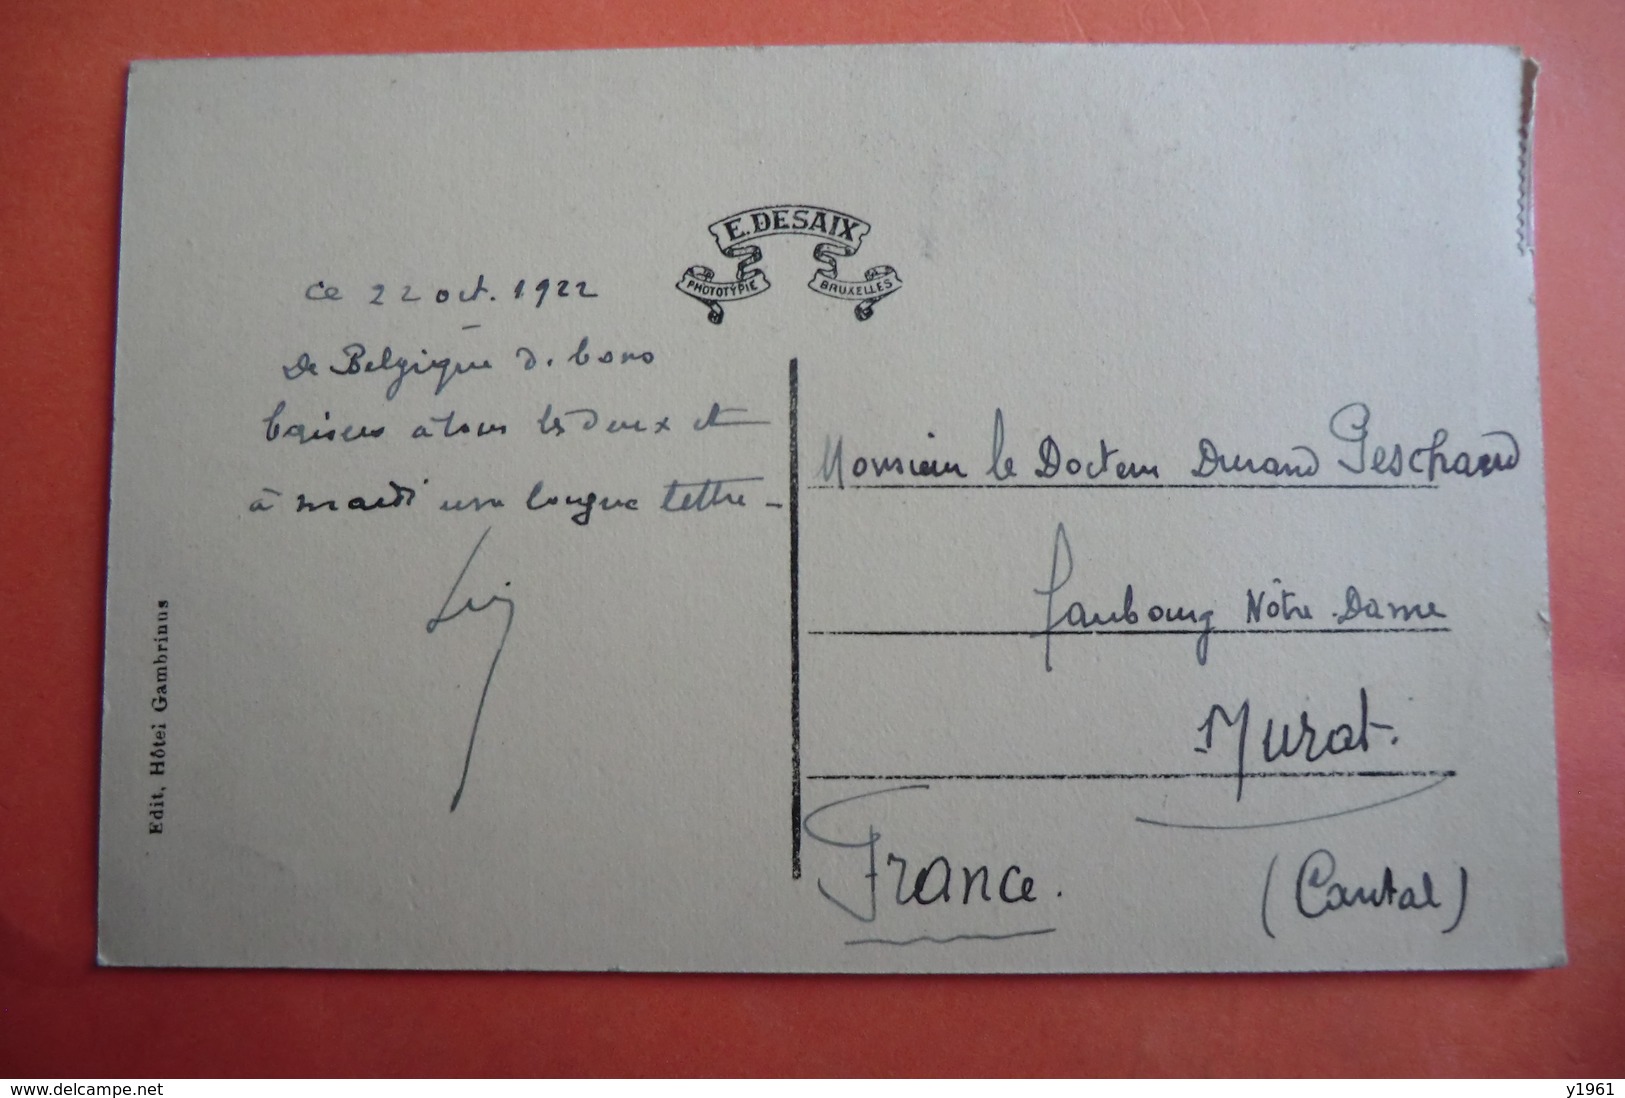 E. DESAIX
PHOTOTYPIE BRUXELLES
ce 22 oct. 1922
De Belgique d. bons
baisers à tous les deux et
à mardi une longue lettre -
Monsieur le Docteur Durand Peschaud
faubourg Nôtre-Dame
Murat.
(Cantal)
France.
Edit, Hôtel Gambrinus
www.delcampe.net
y1961